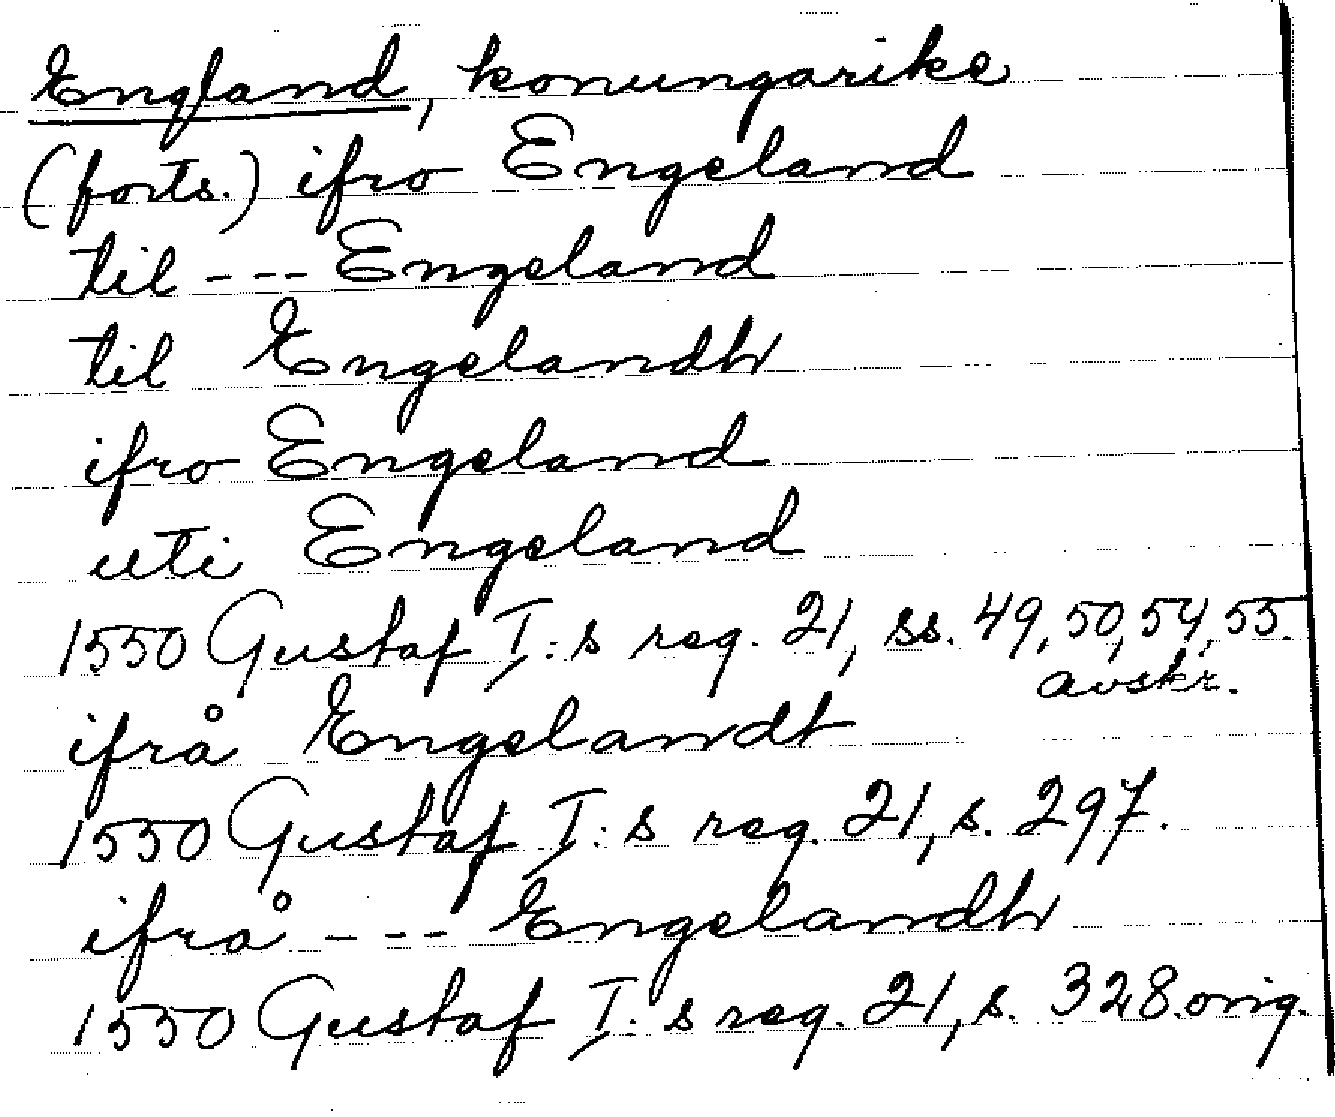 England, konungarike
(forts.) ifro Engeland
til --- Engeland
til Engelandh
ifro Engeland
uti Engeland
1550 Gustaf I:s reg. 21, ss. 49, 50, 54, 55.
avskr.
ifrå Engelandt
1550 Gustaf I:s reg. 21, s. 297.
ifrå --- Engelandh
1550 Gustaf I:s reg. 21, s. 328. orig.